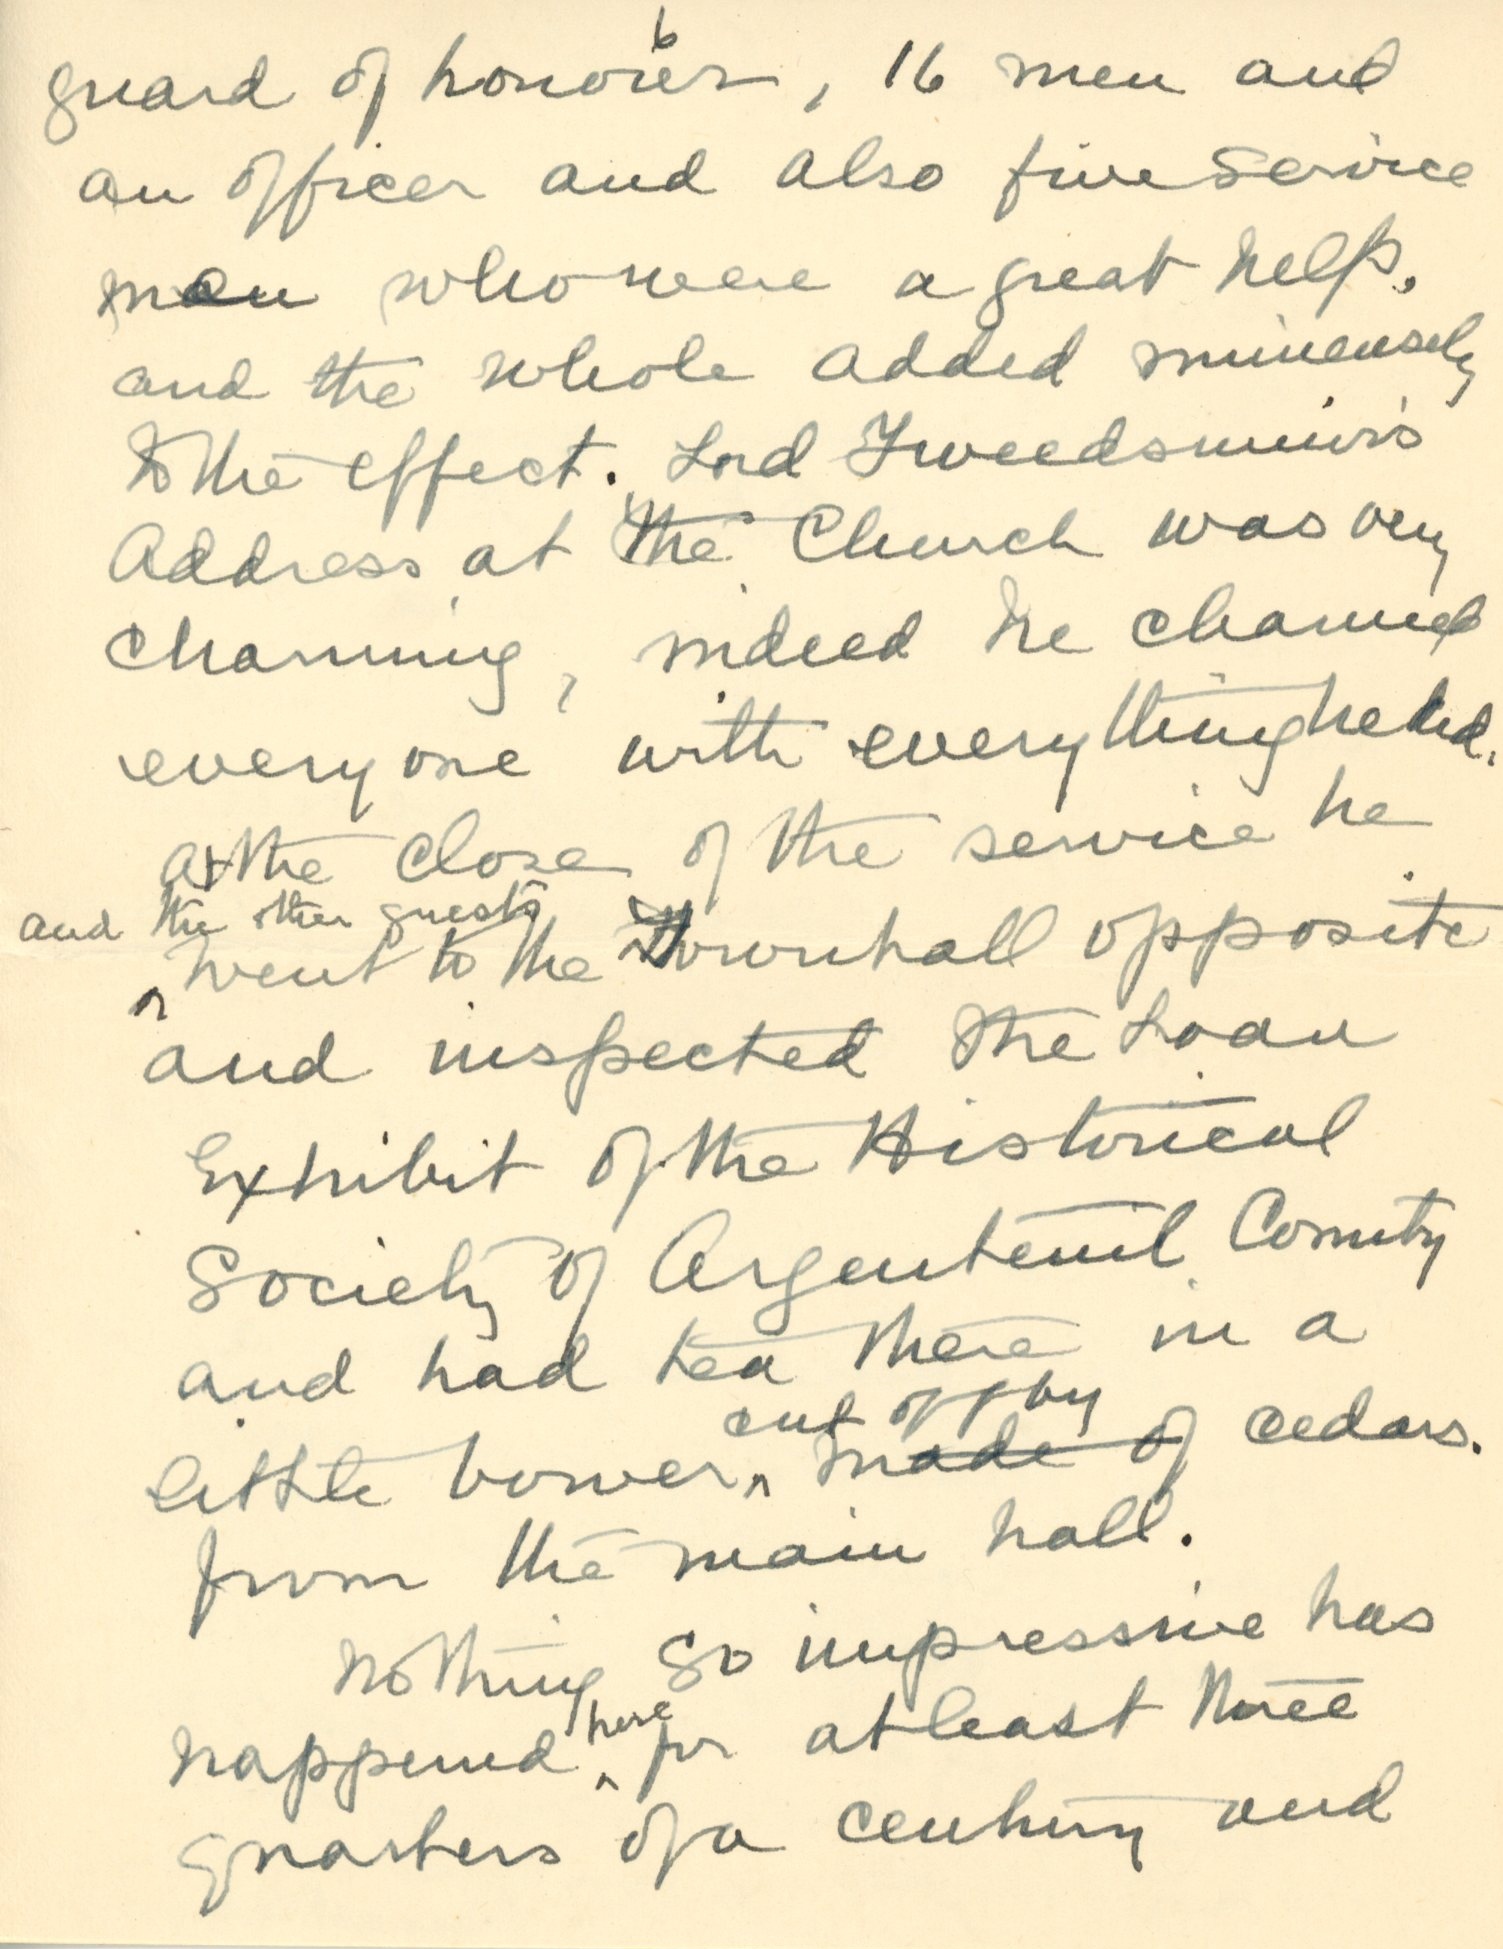 6
guard of honour, 16 men and
an officer and also five service
men who were a great help.
and the whole added immensely
to the effect. Lord Tweedsmuir's
Address at the Church was very
charming, indeed he charmed
everyone with everything he did.
at the close of the service he
and the other guests
went to the Townhall opposite
and inspected the Loan
Exhibit of the Historical
Society of Argenteuil County
and had tea there in a
cut off by
little bower made of cedars.
from the main hall.
Nothing so impressive has
happened here for at least three
quarters of a century and